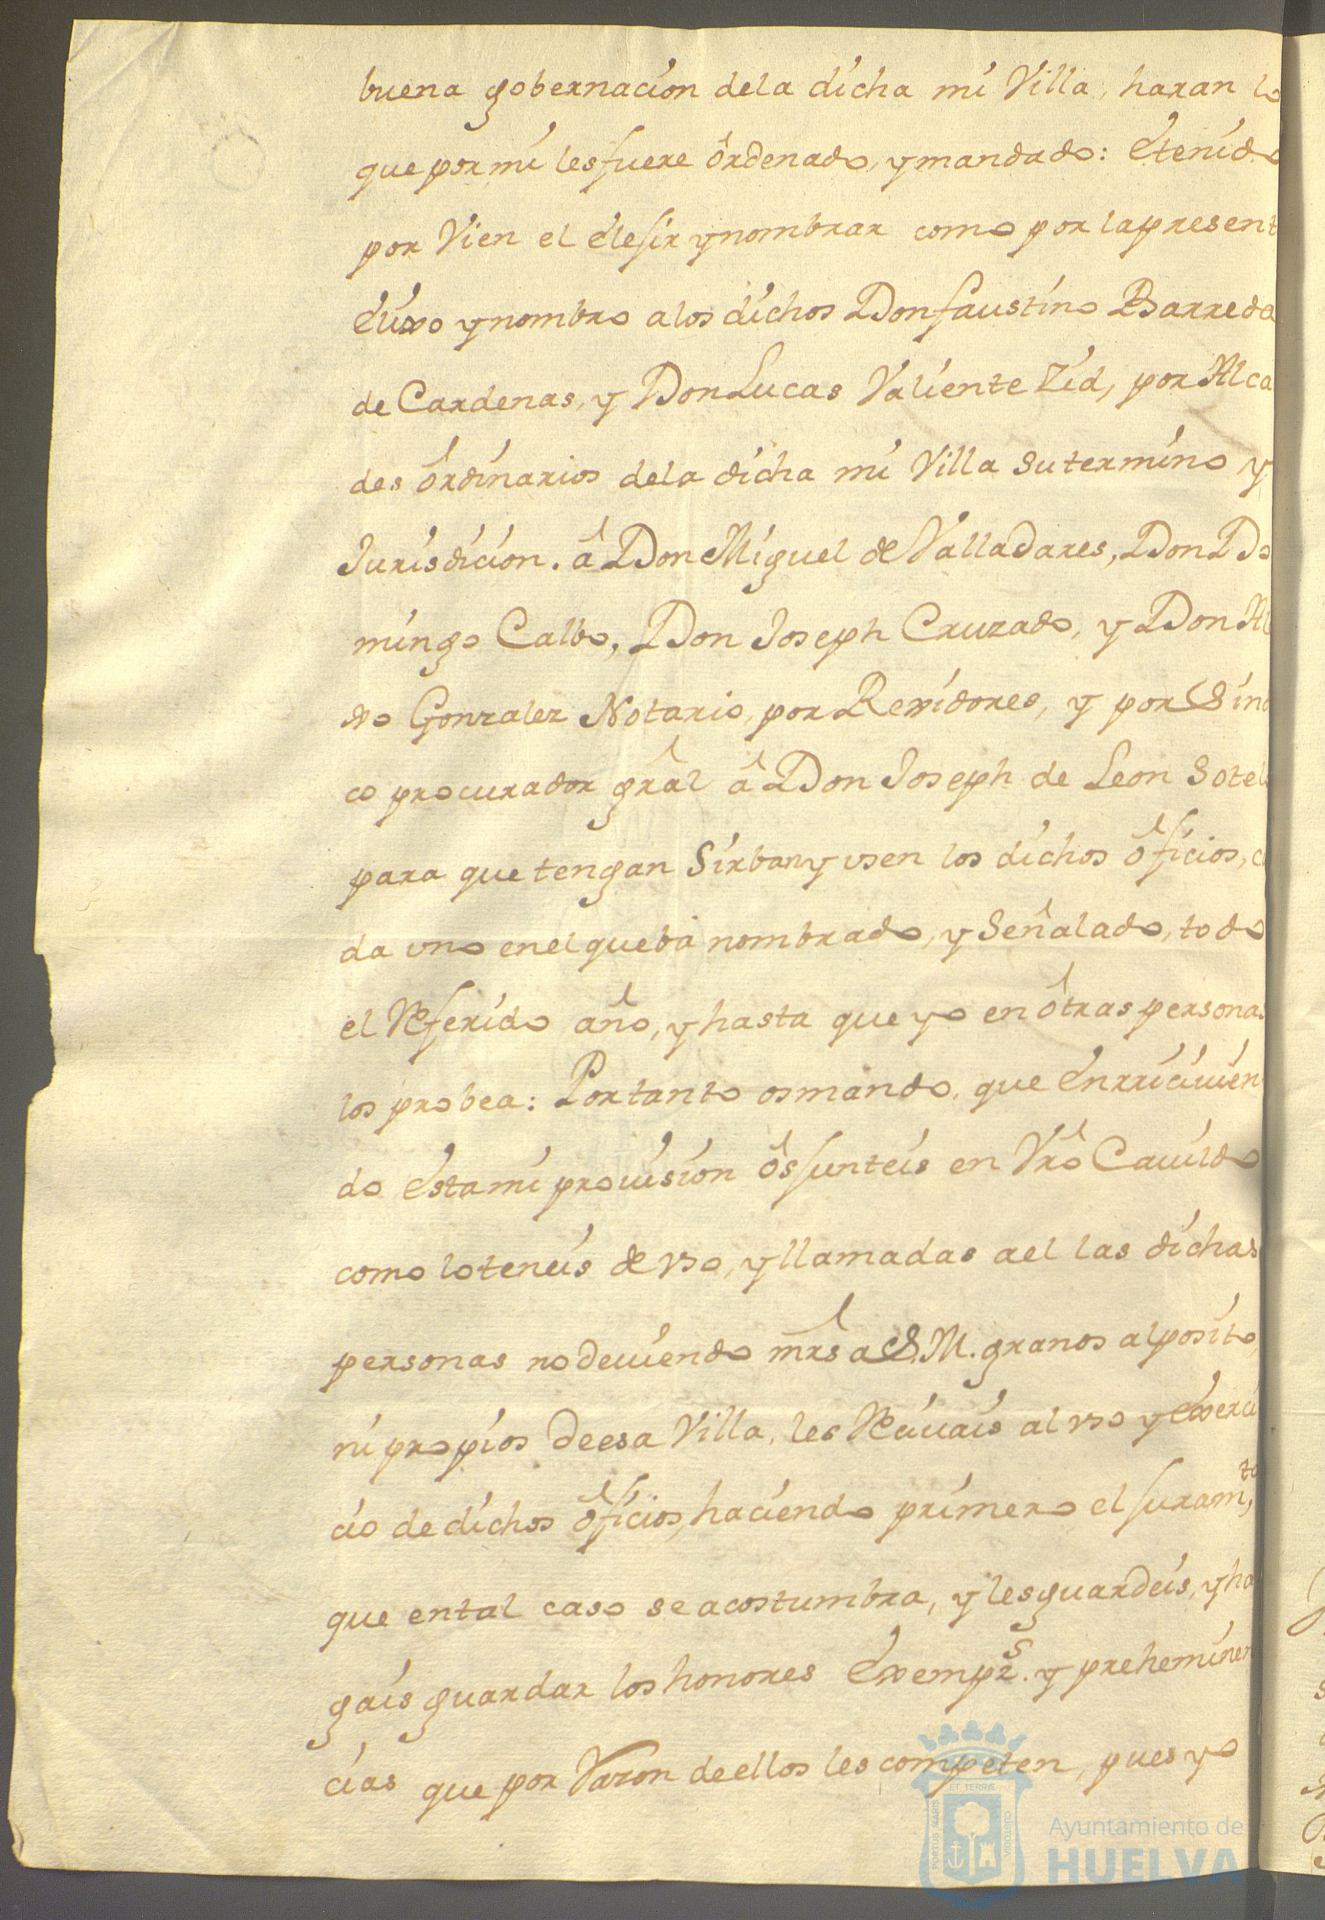 buena gobernacion dela dicha mi Villa, haran lo
que por mi les fuere ôrdenado, y mandado: étenido
por Vien el élesir y nombrar como por la present
élixo y nombro a los dichos Don faustino Barreda
de Cardenas, y Don Lucas Valiente Zid, por Alca
des ôrdinarios dela dicha mi Villa su termino y
Jurisdicion. â Don Miguel de Valladares, Don Do
mingo Calbo, Don Joseph Cruzado, y Don Al
xo Gonzalez Notario, por Rexidores, y por Sind
co procurador grâl â Don Joseph de Leon Sotel
para que tengan Sirban y vsen los dichos ôficios, ca
da vno en el que bà nombrado, y Señalado, todo
el Referido año, y hasta que yo en ôtras personas
los probea: Por tanto os mando, que énrriciuien
do ésta mi prouision ôs junteis en Vrô Cauildo
como lo teneis de vso, y llamadas a el las dichas
personas no deuiendo mrs a S. M. granos al posito
ni propios de esa Villa, les Reciuais al vso y éxerci
cio de dichos ôficios, haciendo primero el juramto,
que en tal caso se acostumbra, y les guardeis, y ha
gais guardar los honores éxemprs. y preheminen
cias que por Razon de ellos les competen, pues yo
PORTUS MARIS ET TERRÆ CUSTODIA
Ayuntamiento de
HUELVA